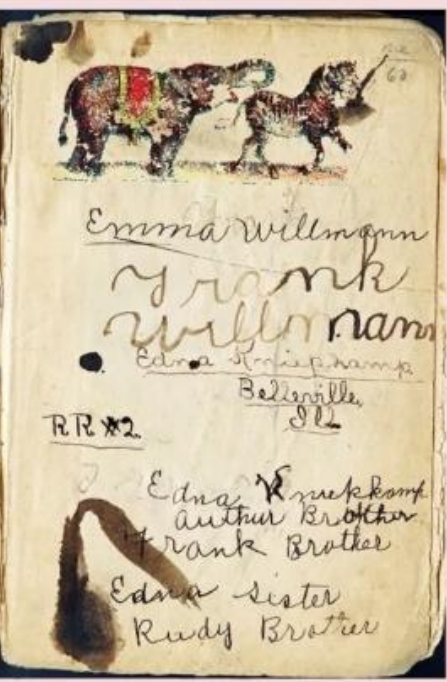 60
Emma Willmann
Frank
Willmann
Edna Kniepkamp
Belleville,
Ill
RR #2
Edna Kniepkamp
Authur Brother
Frank Brother
Edna Sister
Rudy Brother